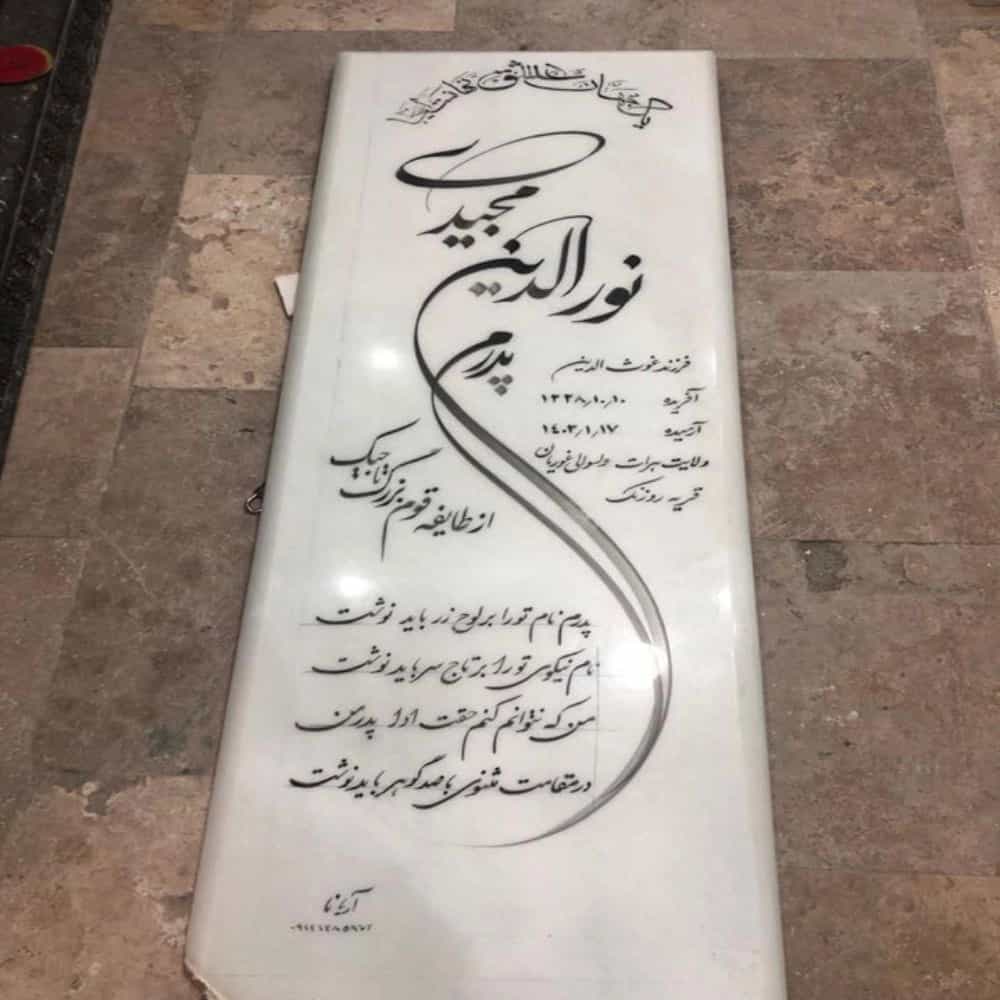 یک جهان عشق تماشاییست اینجا
مجیدی
نورالدین
پدرم
فرزند غوث الدین
آفریده ۱۳۳۸٫۱۰٫۱۰
آرمیده ۱۴۰۳٫۱٫۱۷
ولایت هرات ولسوالی غوریان
قریه روزنک
از طایفه قوم بزرگ تاجیک
پدرم نام تو را بر لوح زر باید نوشت
نام نیکوی تو را بر تاج سر باید نوشت
من که نتوانم کنم حقت ادا پدر من
در مقامت مثنوی با صد گوهر باید نوشت
آریانا